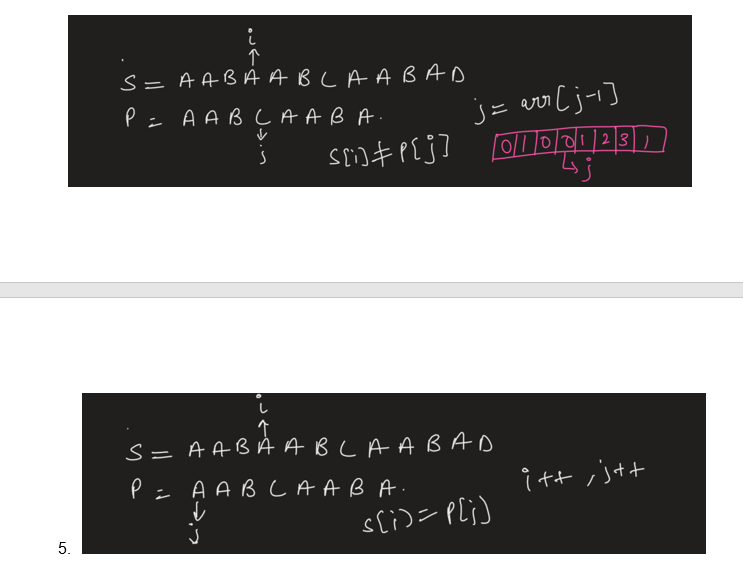 i
S = A A B A A B C A A B A D
P = A A B C A A B A.
j = arr[j-1]
j
S[i] ≠ P[j]
0 1 0 0 1 2 3 1
j
i
S = A A B A A B C A A B A D
P = A A B C A A B A.
i++, j++
j
s[i] = P[j]
5.